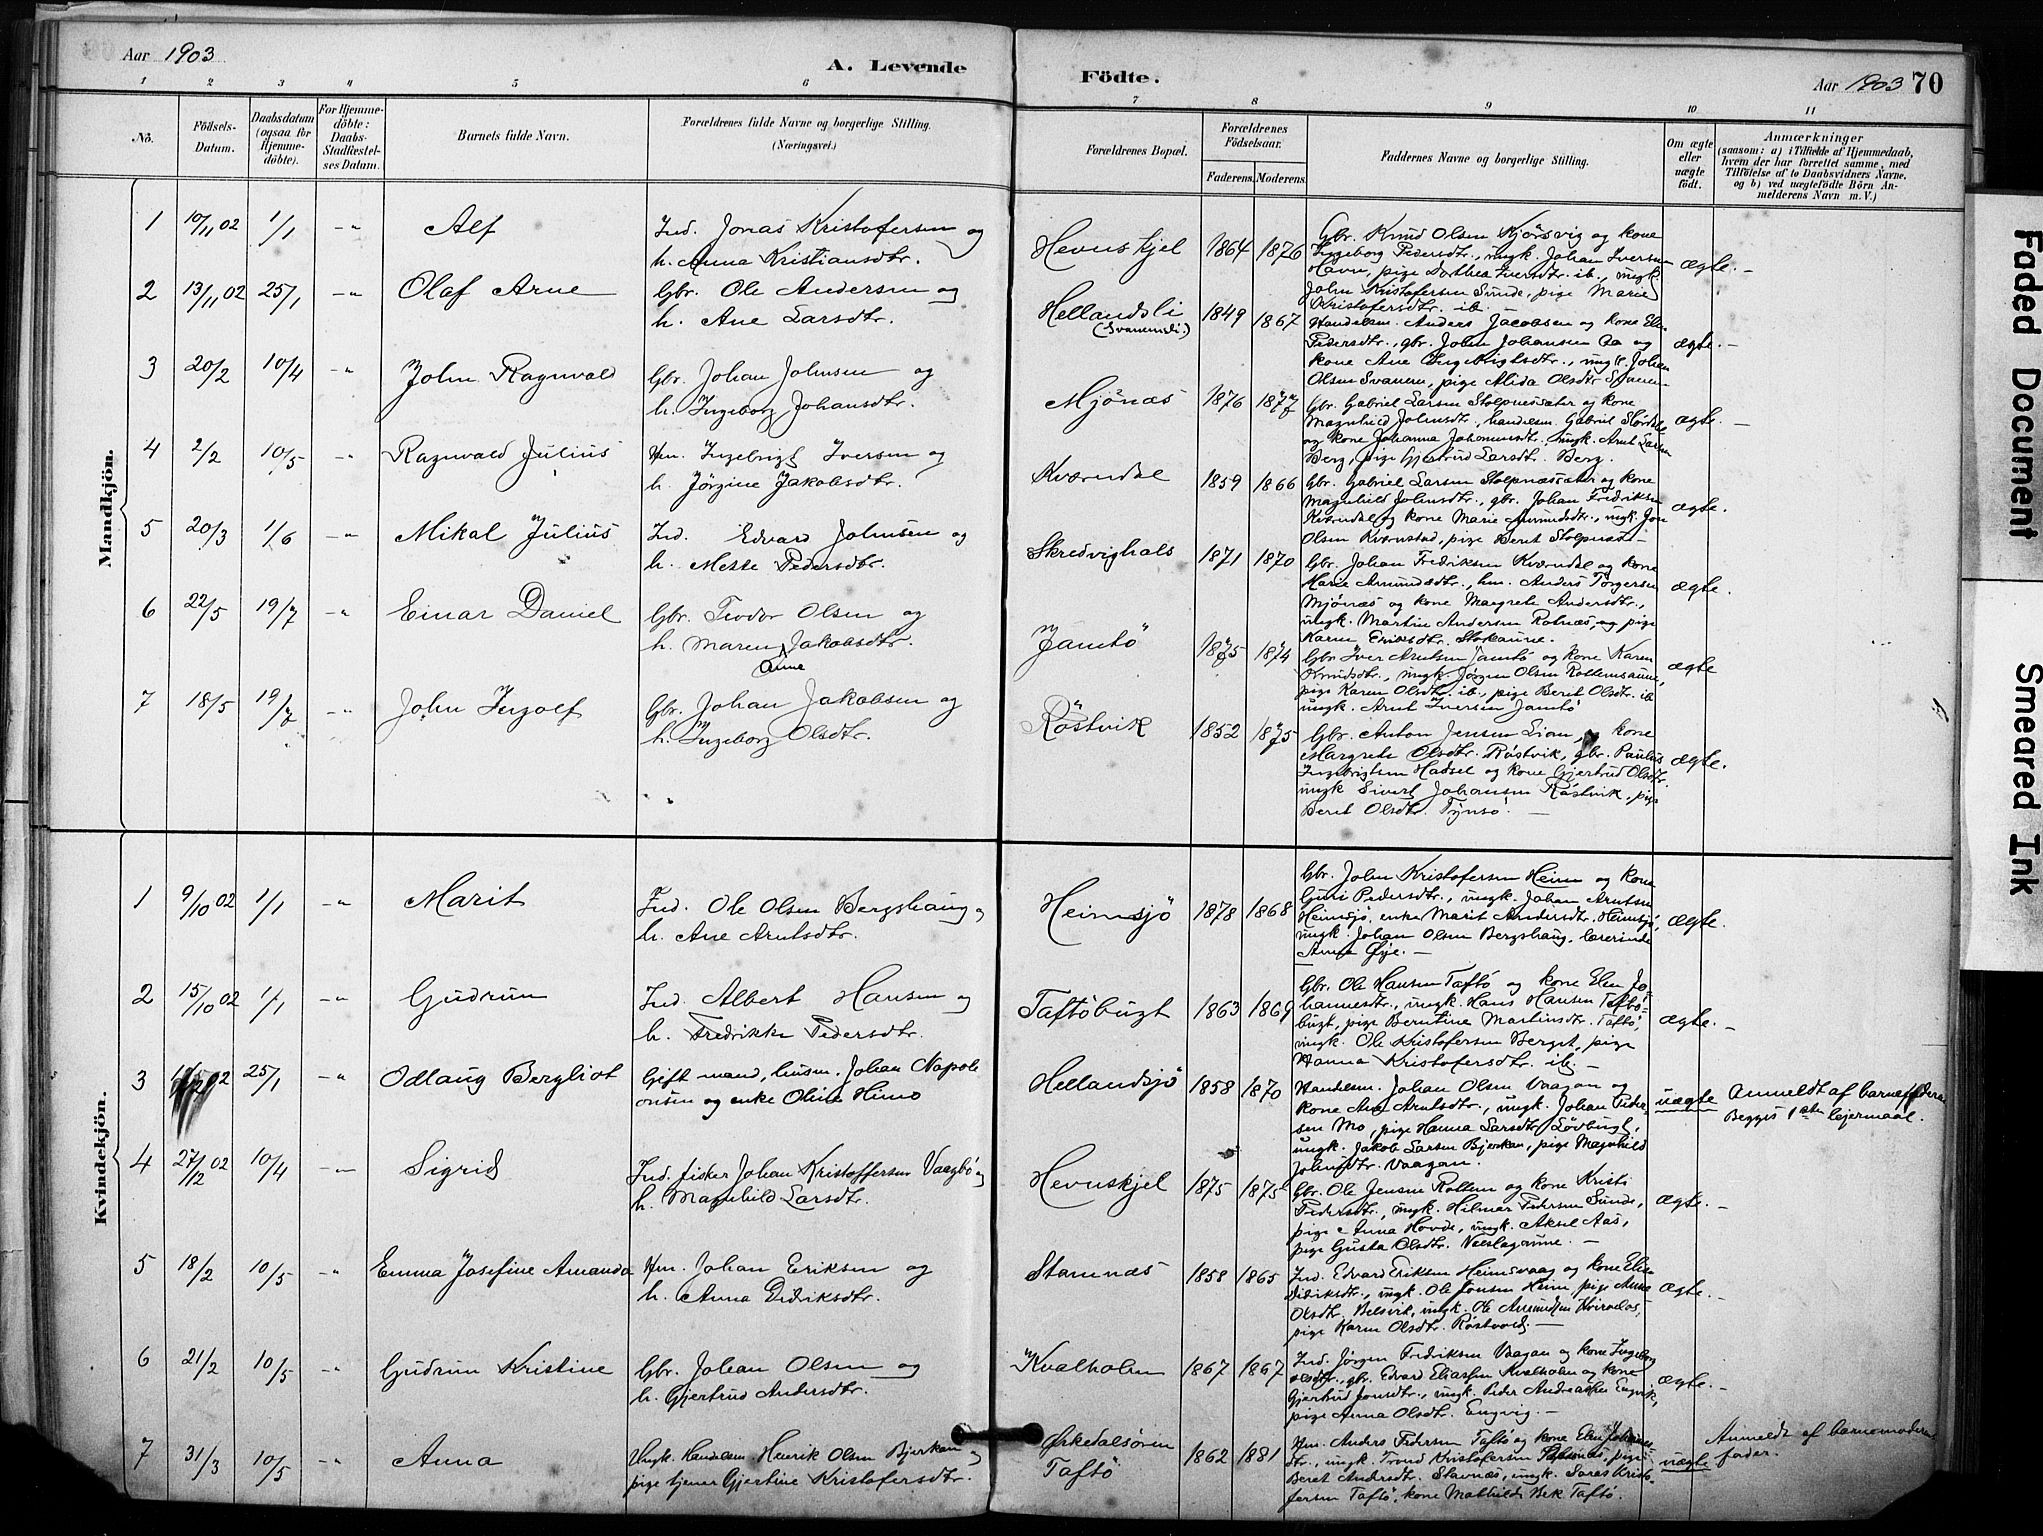 Aar 1903
A. Levende Födte.
Aar 1903 70
1 2 3 4 5 6 7 8 9 10 11
No.
Födsels-Datum.
Daabsdatum (ogsaa for Hjemme-döbte).
For Hjemme-döbte: Daabs-Stadfæstel-ses Datum.
Barnets fulde Navn.
Forældrenes fulde Navne og borgerlige Stilling.
(Næringsvei.)
Forældrenes Bopæl.
Forældrenes Födselsaar.
Faderens. Moderens.
Faddernes Navne og borgerlige Stilling.
Om ægte eller uægte födt.
Anmærkninger
(saasom: a) i Tilfælde af Hjemmedaab,
hvem der har forrettet samme, med
Tilföielse af to Daabsvidners Navne,
og b) ved uægtefödte Börn An-
melderens Navn m. V.)
Mandkjön.
1 10/11 02 1/1 -"- Alf
Ind. Jonas Kristofersen og
h. Anna Kristiansdtr.
Hevnskjel 1864 1876
Gbr. Knud Olsen Kjörsvig og kone
Ingeborg Pedersdtr., ungk. Johan Iversen
Havn, pige Dorthea Iversdtr. ib., ungk
John Kristofersen Sunde, pige Marie
Kristofersdtr. ib.
ægte. -
2 13/11 02 25/1 -"- Olaf Arne
Gbr. Ole Andersen og
h. Ane Larsdtr.
Hellandsli
(Svanemsli) 1849 1867
Handelsm. Anders Jacobsen og kone Eli
Pedersdtr., gbr. John Johansen Aa og
kone Ane Ingebrigtsdtr., ungk. Johan
Olsen Svanem, pige Alida Olsdtr
ægte. -
3 20/2 10/4 -"- John Ragnvald
Gbr. Johan Johnsen og
h. Ingeborg Johansdtr.
Mjönæs 1876 1877
Gbr. Gabriel Larsen Stolpnessæter og kone
Magnhild Johnsdtr., handelsm. Gabriel
og kone Johanna Johannesdtr. ungk. Arnt Larsen
Berg, pige Gjertrud Larsdtr. Berg.
ægte. -
4 2/2 10/5 -"- Ragnvald Julius
Hm. Ingebrigt Iversen og
h. Jørgine Jakobsdtr.
Kværndal 1859 1866
Gbr. Gabriel Larsen Stolpnæssæter og kone
Magnhild Johnsdtr., gbr. Johan Fredriksen
Kværndal og kone Marie Amundsdtr., ungk. Jon
Olsen Kværnstad, pige Beret Stolpnæs -
ægte.
5 20/3 1/6 -"- Mikal Julius
Ind. Edvard Johnsen og
h. Mette Pedersdtr.
Skredvighals 1871 1870
Gbr. Johan Fredriksen Kværndal og kone
Marie Amundsdtr., hm. Anders Torgersen
Mjönæs og kone Margrete Andersdtr.,
ungk. Martin Andersen Rotnæs, og pige
Karen Eriksdtr. Stokaune.
ægte.
6 22/5 19/7 -"- Einar Daniel
Gbr. Teodor Olsen og
h. Maren Anne Jakobsdtr.
Jamtö 1875 1874
Gbr Iver Arntsen Jamtö og kone Karen
Knudsdtr., ungk. Jørgen Olsen Rottemsaune,
pige Karen Olsdtr. ib., pige Berit Olsdtr. ib
ungk. Arnt Iversen Jamtö
ægte
7 18/5 19/7 -"- John Ingolf
Gbr. Johan Jakobsen og
h. Ingeborg Olsdtr.
Röstvik 1852 1875
Gbr. Anton Jensen Lian, kone
Margrete Olsdtr. Röstvik, gbr. Paulus
Ingebrigtsen Hadsel og kone Gjertrud Olsdtr.
ungk Sivert Johansen Röstvik, pige
Beret Olsdtr. Tynsö. -
ægte.
Kvindekjön.
1 9/10 02 1/1 -"- Marit
Ind. Ole Olsen Bergshaug og
h. Ane Arntsdtr.
Heimsjö 1878 1868
Gbr. John Kristofersen Heim og kone
Guri Pedersdtr., ungk. Johan Arntsen
Heimsjö, enke Marit Andersdtr. Heimsjö,
ungk. Johan Olsen Bergshaug, lærerinde
Anna Øye. -
ægte.
2 15/10 02 1/1 -"- Gudrun
Ind. Albert Hansen og
h. Fredrikke Pedersdtr.
Taftöbugt 1863 1869
Gbr. Ole Hansen Taftö og kone Elen Jo-
hannesdtr., ungk. Hans Hansen Taftö-
bugt, pige Berntine Martinsdtr. Taftö,
ungk. Ole Kristofersen Berget, pige
Hanna Kristofersdtr. ib. -
ægte. -
3 02 25/1 -"- Odlaug Bergliot
Gift mand, husm. Johan Napole
onsen og enke Olina Himo
Hellandsjö 1858 1870
Handelsm. Johan Olsen Vaagan og
kone Ane Arntsdtr., ungk. Johan Peder-
sen Mo, pige Hanna Larsdtr Lövbugt,
ungk. Jakob Larsen Bjerkan, pige Magnhild
Johnsdtr. Vaagan.
uægte Anmeldt af barnefaderen
Begges 1ste lejermaal.
4 27/12 02 10/4 -"- Sigrid
Ind. fisker Johan Kristoffersen Vaagbö og
h. Magnhild Larsdtr.
Hevnskjel 1875 1875
Gbr. Ole Jensen Rottem og kone Kristi
Pedersdtr., ungk. Hilmar Pedersen Sunde,
pige Anna Hovde, ungk. Aksel Aas,
pige Gusta Olsdtr. Væslagaune. -
ægte. -
5 18/2 10/5 -"- Emma Josefine Amanda
Hm. Johan Eriksen og
h. Anna Didriksdtr.
Stamnæs 1858 1865
Ind. Edvard Eriksen Heimsvaag og kone Elen
Didriksdtr., ungk. Ole Jonsen Heim, pige Anne
Olsdtr. Belsvik, ungk. Ole Amundsen
pige Karen Olsdtr. Röstvold. -
ægte. -
6 21/2 10/5 -"- Gudrun Kristine
Gbr. Johan Olsen og
h. Gjertrud Andersdtr.
Kvalholm 1867 1867
Ind. Jørgen Fredriksen Vaagan og kone Ingeborg
Olsdtr., gbr. Edvard Eliassen Kvalholm og kone
Gjertrud Jonsdtr., ungk. Peder Andreassen Engvik,
pige Anna Olsdtr. Engvig. -
ægte. -
7 31/3 10/5 -"- Anna
Ungk. Handelsm. Henrik Olsen Bjerkan og
pige tjener Gjertine Kristofersdtr.
Ørkedalsören
Taftö 1862 1881
Hm. Anders Pedersen Taftö og kone Elen Johannes-
dtr., ungk. Trond Kristofersen pige
Beret Andersdtr. Stavnæs, ungk. Kristo
fersen Taftö, kone Mathilde Bek Taftö.
uægte Anmeldt af barnemoderens
fader.
Faded Document
Smeared Ink